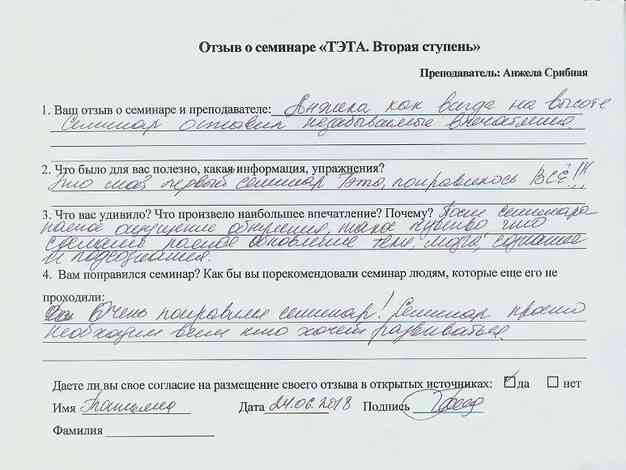 Отзыв о семинаре «ТЭТА. Вторая ступень»
Преподаватель: Анжела Срибная
1. Ваш отзыв о семинаре и преподавателе: Анжела как всегда на высоте
Семинар оставил незабываемые впечатления
2. Что было для вас полезно, какая информация, упражнения?
Это мой первый семинар Тэта, понравилось ВСЁ!!!
3. Что вас удивило? Что произвело наибольшее впечатление? Почему? После семинара
полное ощущение обнуления, такое чувство что
сделали полное обновление тела, мозга, сознания
и подсознания.
4. Вам понравился семинар? Как бы вы порекомендовали семинар людям, которые еще его не
проходили:
Очень понравился семинар! Семинар просто
необходим всем кто хочет развиваться.
Даете ли вы свое согласие на размещение своего отзыва в открытых источниках: да нет
Имя Татьяна Дата 24.06.2018 Подпись
Фамилия